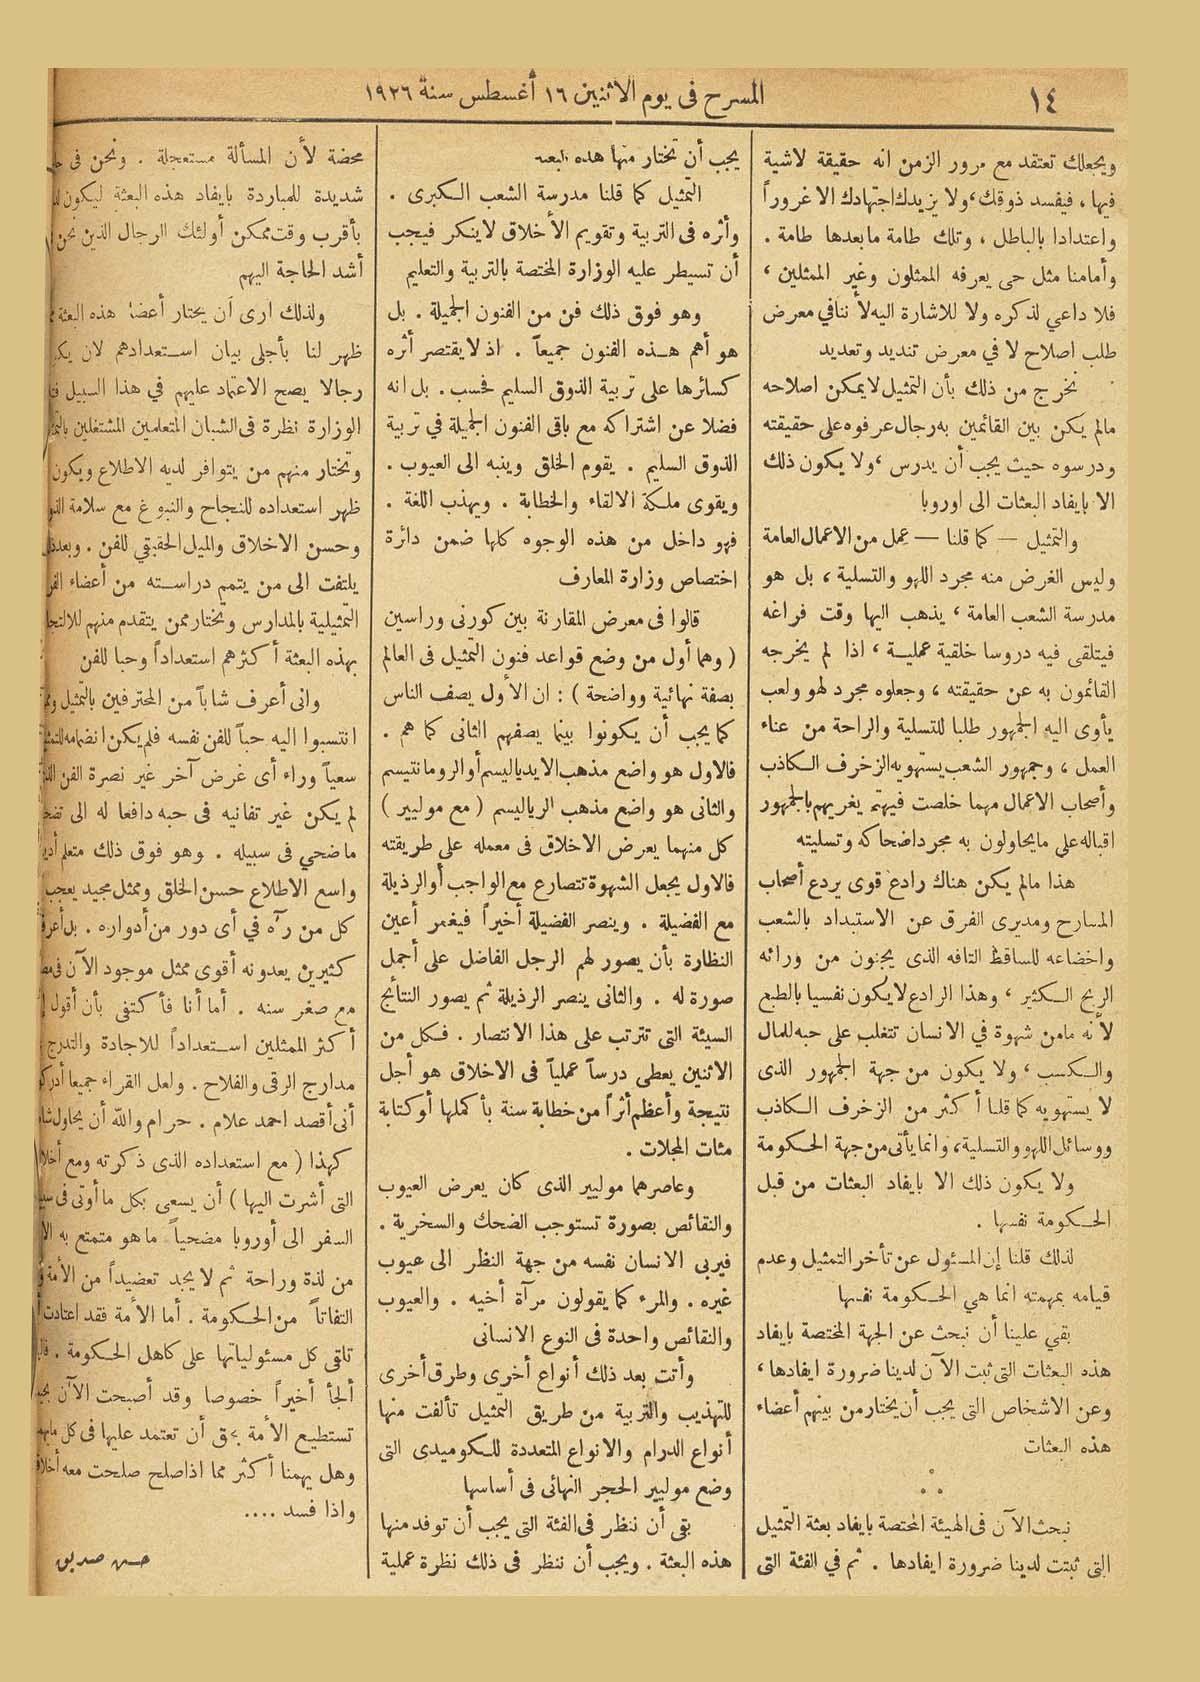 ١٤
المسرح فى يوم الاثنين ١٦ أغسطس سنة ١٩٢٦
ويجعلك تعتقد مع مرور الزمن انه حقيقة لاشية
فيها، فيفسد ذوقك، ولا يزيدك اجتهادك الا غروراً
واعتدادا بالباطل ، وتلك طامة مابعدها طامة .
وأمامنا مثل حى يعرفه الممثلون وغير الممثلين ،
فلا داعي لذكره ولا للاشارة اليه لأننا في معرض
طلب اصلاح لا في معرض تنديد وتعديد
نخرج من ذلك بأن التمثيل لا يمكن اصلاحه
مالم يكن بين القائمين به رجال عرفوه على حقيقته
ودرسوه حيث يجب أن يدرس ، ولا يكون ذلك
الا بإيفاد البعثات الى اوروبا
والتمثيل — كما قلنا — عمل من الاعمال العامة
وليس الغرض منه مجرد اللهو والتسلية ، بل هو
مدرسة الشعب العامة ، يذهب اليها وقت فراغه
فيتلقى فيه دروسا خلقية عملية ، اذا لم يخرجه
القائمون به عن حقيقته ، وجعلوه مجرد لهو ولعب
يأوى اليه الجمهور طلبا للتسلية والراحة من عناء
العمل ، وجمهور الشعب يستهويه الزخرف الكاذب
وأصحاب الاعمال مهما خلصت فيهم يغريهم بالجمهور
اقباله على مايحاولون به مجرد اضحاكه وتسليته
هذا مالم يكن هناك رادع قوى يردع أصحاب
المسارح ومديرى الفرق عن الاستبداد بالشعب
واخضاعه للساقط التافه الذى يجنون من ورائه
الربح الكثير ، وهذا الرادع لا يكون نفسيا بالطبع
لأنه مامن شهوة في الانسان تتغلب على حبه للمال
والكسب ، ولا يكون من جهة الجمهور الذى
لا يستهويه كما قلنا أكثر من الزخرف الكاذب
ووسائل اللهو والتسلية، وانما يأتى من جهة الحكومة
ولا يكون ذلك الا بايفاد البعثات من قبل
الحكومة نفسها .
لذلك قلنا إن المسئول عن تأخر التمثيل وعدم
قيامه بمهمته انما هي الحكومة نفسها
بقي علينا أن نبحث عن الجهة المختصة بايفاد
هذه البعثات التى ثبت الآن لدينا ضرورة ايفادها ،
وعن الاشخاص التى يجب أن يختار من بينهم أعضاء
هذه البعثات
نبحث الآن فى الهيئة المختصة بايفاد بعثة التمثيل
التى ثبتت لدينا ضرورة ايفادها . ثم في الفئة التى
يجب أن تختار منها هذه البعثة
التمثيل كما قلنا مدرسة الشعب الكبرى .
وأثره فى التربية وتقويم الأخلاق لاينكر فيجب
أن تسيطر عليه الوزارة المختصة بالتربية والتعليم
وهو فوق ذلك فن من الفنون الجميلة . بل
هو أهم هذه الفنون جميعاً . اذ لا يقتصر أثره
كسائرها على تربية الذوق السليم فحسب . بل انه
فضلا عن اشتراكه مع باقى الفنون الجميلة في تربية
الذوق السليم . يقوم الخلق وينبه الى العيوب .
ويقوى ملكة الالقاء والخطابة . ويهذب اللغة .
فهو داخل من هذه الوجوه كلها ضمن دائرة
اختصاص وزارة المعارف
قالوا فى معرض المقارنة بين كورنى وراسين
( وهما أول من وضع قواعد فنون التمثيل فى العالم
بصفة نهائية وواضحة ) : ان الأول يصف الناس
كما يجب أن يكونوا بينما يصفهم الثانى كما هم .
فالاول هو واضع مذهب الايدياليسم أو الرومانتيسم
والثانى هو واضع مذهب الرياليسم ( مع موليير )
كل منهما يعرض الاخلاق فى معمله على طريقته
فالاول يجعل الشهوة تتصارع مع الواجب أو الرذيلة
مع الفضيلة . وينصر الفضيلة أخيراً فيغمر أعين
النظارة بأن يصور لهم الرجل الفاضل على أجمل
صورة له . والثانى ينصر الرذيلة ثم يصور النتائج
السيئة التى تترتب على هذا الانتصار . فكل من
الاثنين يعطى درساً عملياً فى الاخلاق هو أجل
نتيجة وأعظم أثراً من خطابة سنة بأكملها أو كتابة
مئات المجلات .
وعاصرهما موليير الذى كان يعرض العيوب
والنقائص بصورة تستوجب الضحك والسخرية .
فيربى الانسان نفسه من جهة النظر الى عيوب
غيره . والمرء كما يقولون مرآة أخيه . والعيوب
والنقائص واحدة فى النوع الانسانى
وأتت بعد ذلك أنواع أخرى وطرق أخرى
للتهذيب والتربية من طريق التمثيل تألفت منها
أنواع الدرام والانواع المتعددة للكوميدى التى
وضع موليير الحجر النهائى فى أساسها
بقى أن ننظر فى الفئة التى يجب أن توفد منها
هذه البعثة . ويجب أن ننظر فى ذلك نظرة عملية
محضة لأن المسألة مستعجلة . ونحن فى
شديدة للمبادرة بايفاد هذه البعثة ليكون
بأقرب وقت ممكن أولئك الرجال الذين نحن
أشد الحاجة اليهم
ولذلك ارى أن يختار أعضاء هذه البعثة
ظهر لنا بأجلى بيان استعدادهم لان
رجالا يصح الاعتماد عليهم في هذا السبيل
الوزارة نظرة فى الشبان المتعلمين المشتغلين
وتختار منهم من يتوافر لديه الاطلاع ويكون
ظهر استعداده للنجاح والنبوغ مع سلامة
وحسن الاخلاق والميل الحقيقي للفن .
يلتفت الى من يتمم دراسته من أعضاء
التمثيلية بالمدارس وتختار ممن يتقدم منهم
بهذه البعثة أكثرهم استعداداً وحبا للفن
وانى أعرف شاباً من المحترفين بالتمثيل
انتسبوا اليه حباً للفن نفسه فلم يكن انضمامه
سعياً وراء أى غرض آخر غير نصرة الفن
لم يكن غير تفانيه فى حبه دافعا له الى
ماضحي فى سبيله . وهو فوق ذلك متعلم
واسع الاطلاع حسن الخلق وممثل مجيد يعجب
كل من رآه في أى دور من أدواره . بل
كثيرين يعدونه أقوى ممثل موجود الآن
مع صغر سنه . أما أنا فأكتفى بأن أقول
أكثر الممثلين استعداداً للاجادة والتدرج
مدارج الرقى والفلاح . ولعل القراء جميعا
أنى أقصد احمد علام . حرام والله أن يحاول
كهذا ( مع استعداده الذى ذكرته ومع
التى أشرت اليها ) أن يسعى بكل ما أوتى فى
السفر الى أوروبا مضحياً ماهو متمتع به
من لذة وراحة ثم لا يجد تعضيداً من الأمة
التفاتاً من الحكومة . أما الأمة فقد اعتادت
تلقى كل مسئولياتها على كاهل الحكومة .
ألجأ أخيراً خصوصا وقد أصبحت الآن
تستطيع الأمة بحق أن تعتمد عليها فى كل
وهل يهمنا أكثر مما اذا صلح صلحت معه
واذا فسد ....
حسن صديق